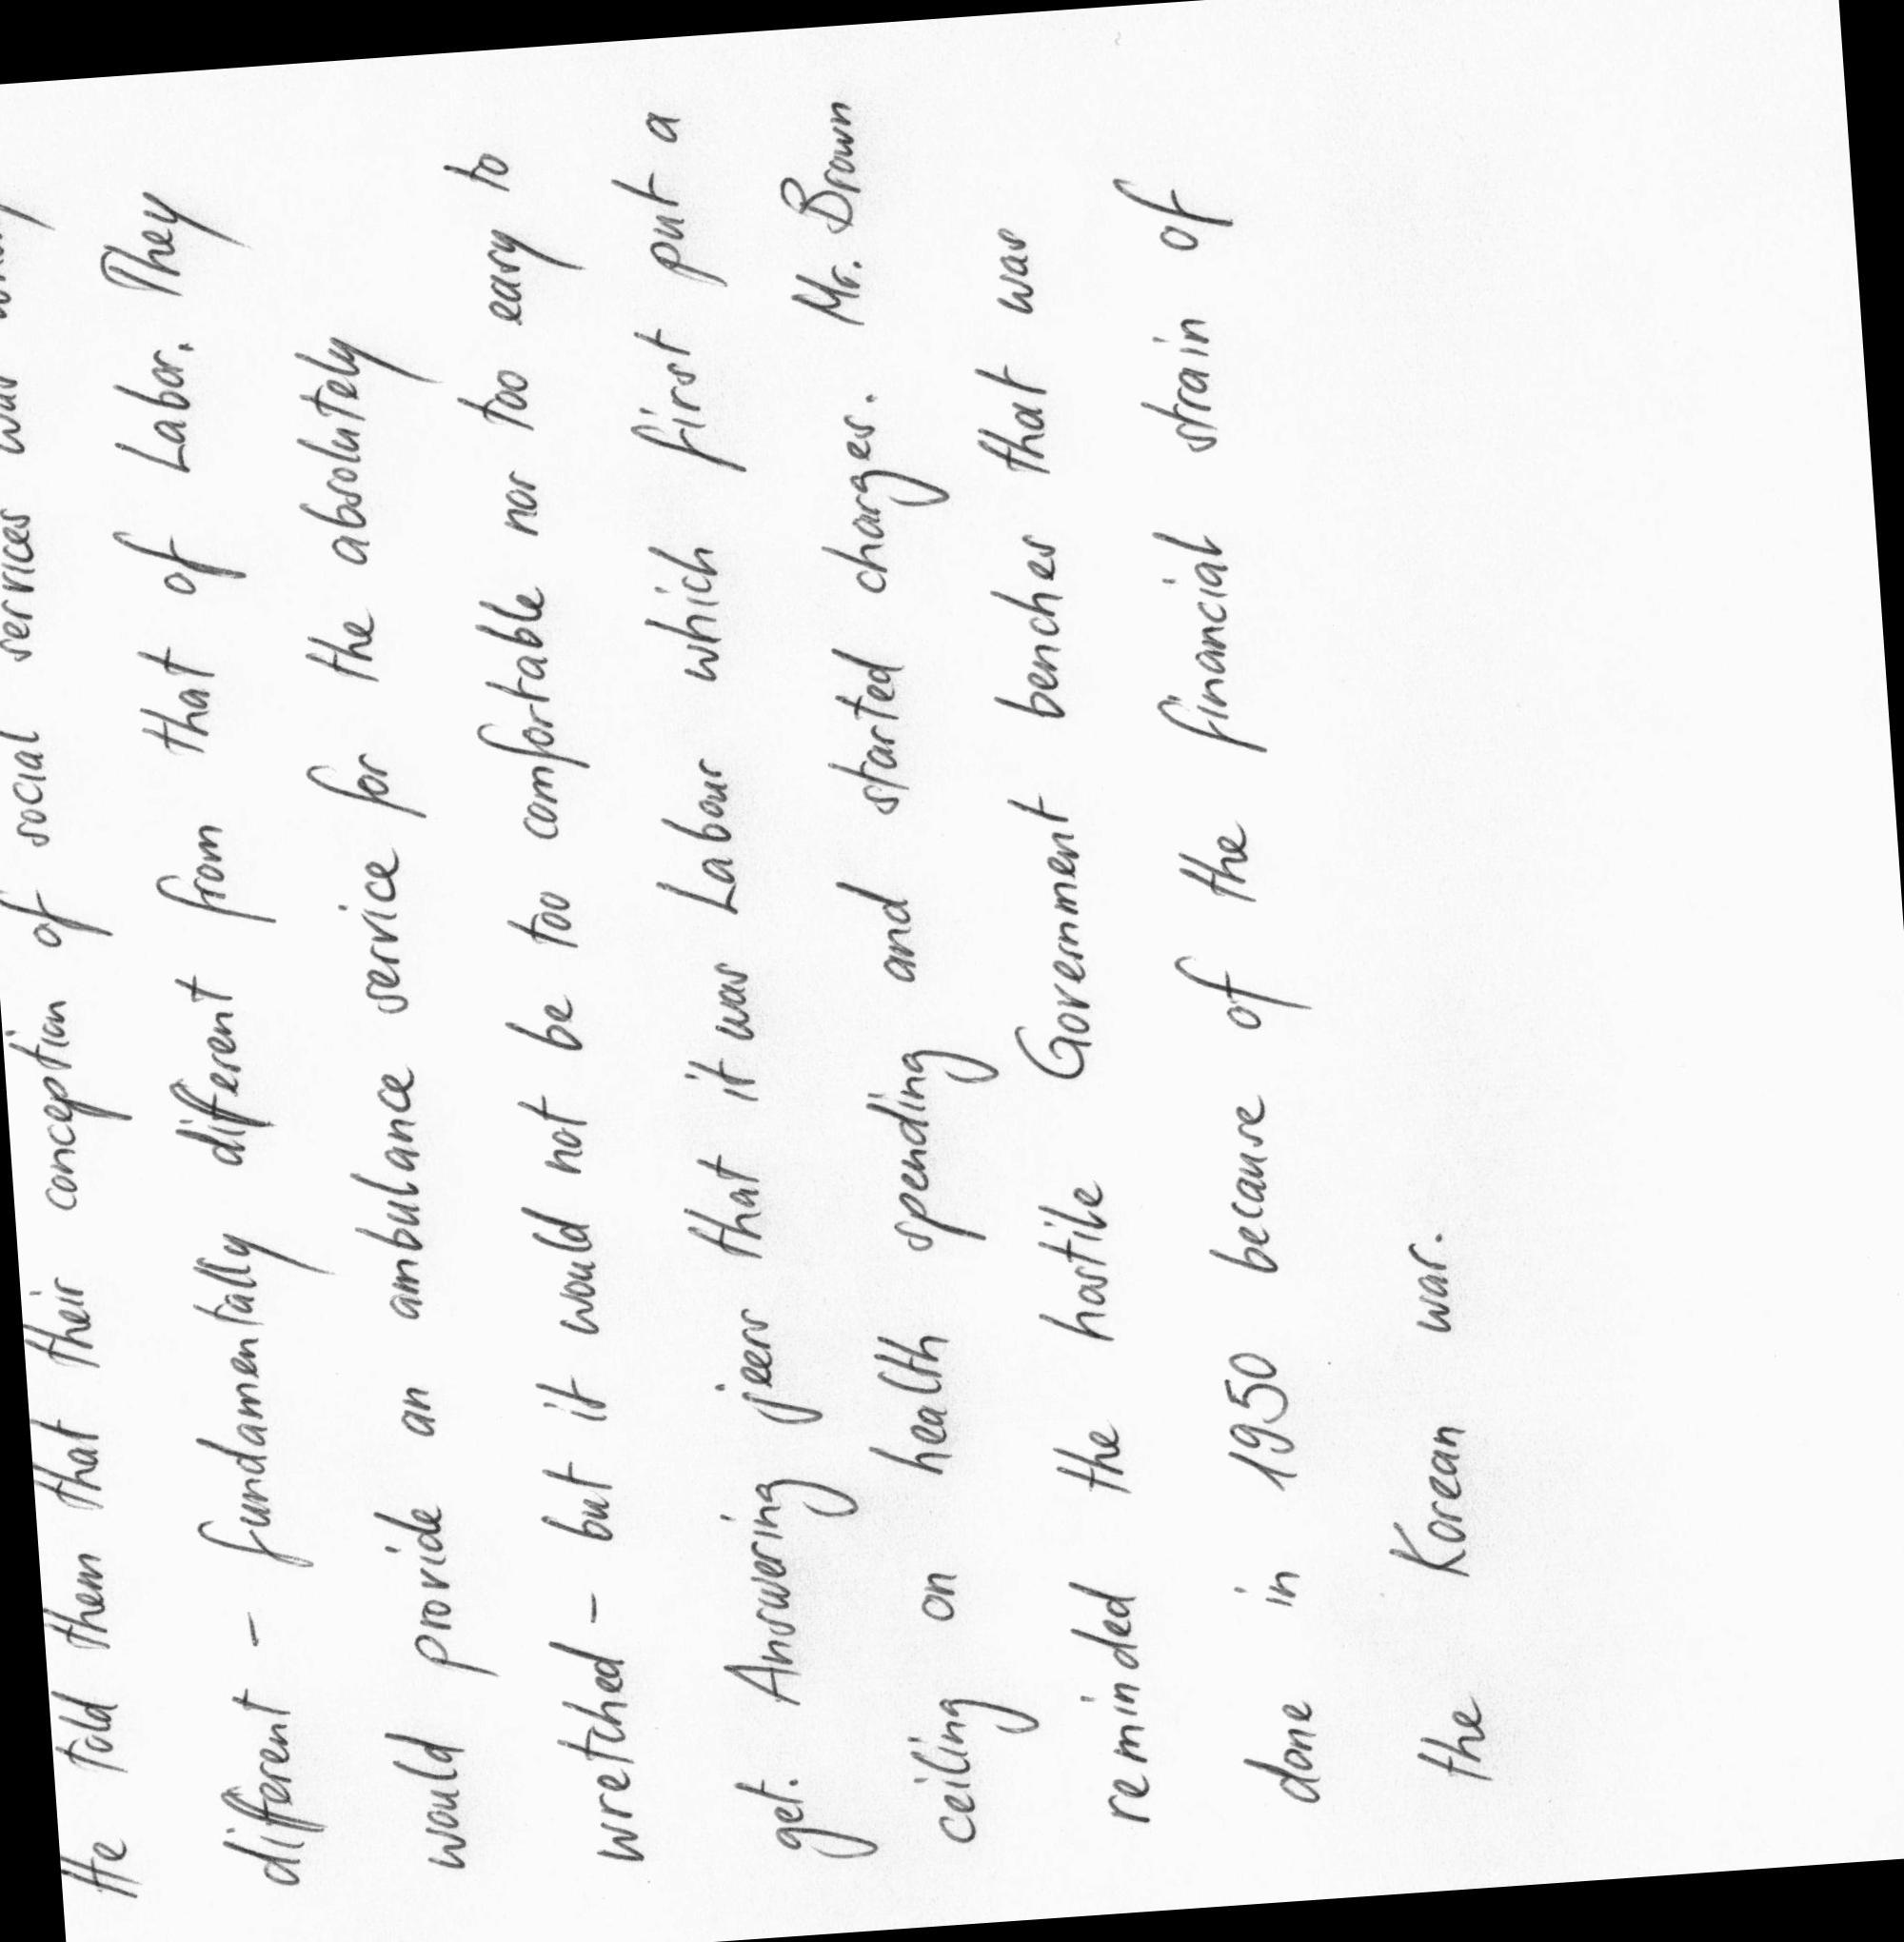 He told them that their conception of social services was
different - fundamentally different from that of Labor. They
would provide an ambulance service for the absolutely
wretched - but it would not be too comfortable nor too easy to
get. Answering jeers that it was Labour which first put a
ceiling on health spending and started charges. Mr. Brown
reminded the hostile Government benches that was
done in 1950 because of the financial strain of
the Korean war.